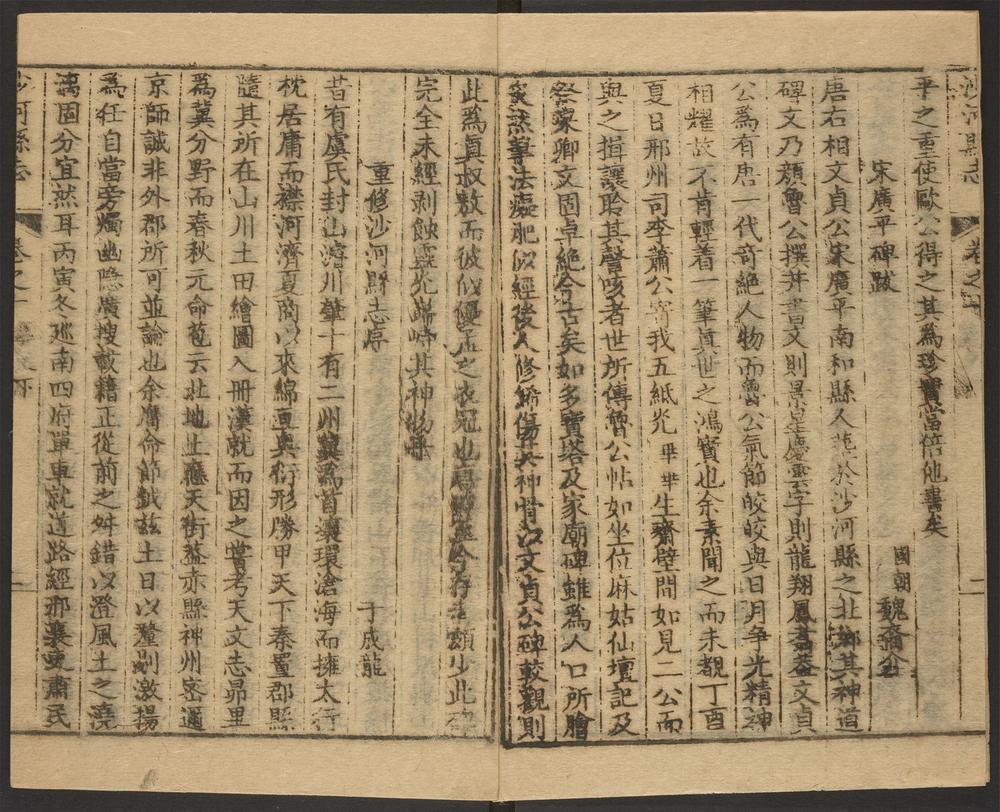 沙河縣志
卷之
二
平之重使歐公得之其為珍寶當倍他書矣
宋廣平碑跋
國朝魏裔介
唐右相文貞公宋廣平南和縣人葬於沙河縣之北鄉其神道
碑文乃顏魯公撰并書文則景星慶雲字則龍翔鳳翥蓋文貞
公為有唐一代奇絕人物而魯公氣節皎皎與日月爭光精神
相耀故不肯輕着一筆真世之鴻寶也余素聞之而未覩丁酉
夏日邢州司李蕭公寄我五紙光畢畢生齋壁間如見二公而
與之揖讓聆其謦咳者世所傳魯公帖如坐位麻姑仙壇記及
祭蒙卿文固卓絕今古矣如多寶塔及家廟碑雖為人口所膾
炙然筆法癡肥似經後人修飾傷其神骨以文貞公碑較觀則
此為真叔敖而彼似優孟之衣冠也存者頗少此碑
完全未經剥蝕靈光巋峙其神物乎
重修沙河縣志序
于成龍
昔有虞氏封山濬川肇十有二州冀為首壤環滄海而擁太行
枕居庸而襟河濟夏商以來綿亘輿衍形勝甲天下秦置郡縣
隨其所在山川土田繪圖入冊漢就而因之嘗考天文志昴里
為冀分野而春秋元命苞云北地上應天街葢亦縣神州密邇
京師誠非外郡所可並論也余膺命節鉞兹土日以釐剔激揚
為任自當旁燭幽隐廣搜載籍正從前之舛錯以澄風土之澆
漓固分宜然耳丙寅冬巡南四府單車就道路經邢襄吏肅民
沙河縣志
卷之
序
一